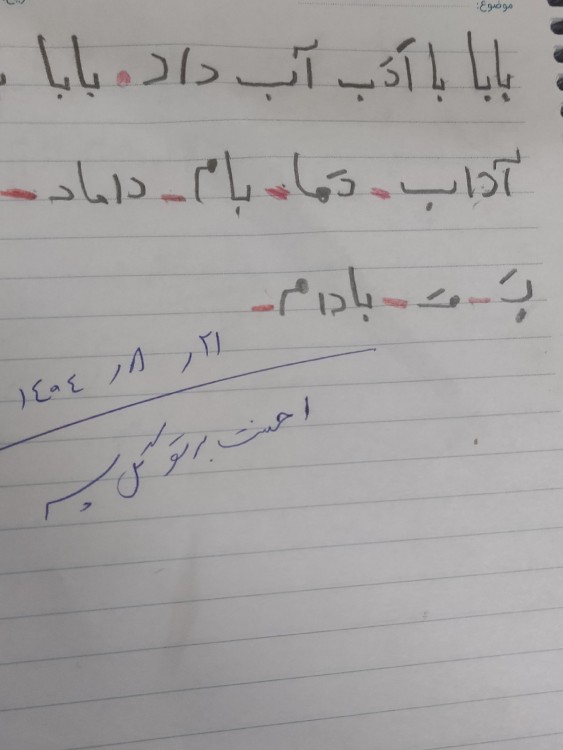 موضوع:
بابا با اَدَب آب داد. بابا
آداب - دَما - بام - داماد -
بَ - مَ - بادام -
۱۴۰۴ ،۸ ،۲۱
احسنت بر تو گل پسر